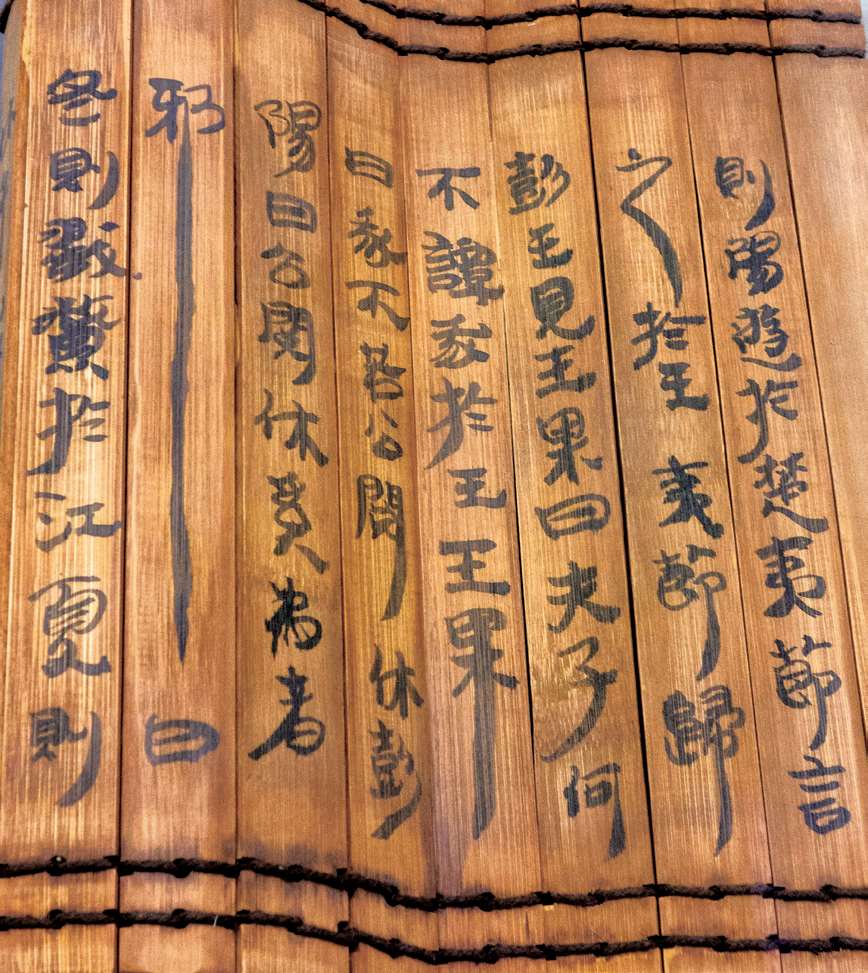 則陽遊於楚夷節言
之於王 夷節歸
彭王見王果曰夫子何
不譚我於王王果
曰我不若公閱 休彭
陽曰公閱休奚為者
邪 曰
冬則鱉於江夏則